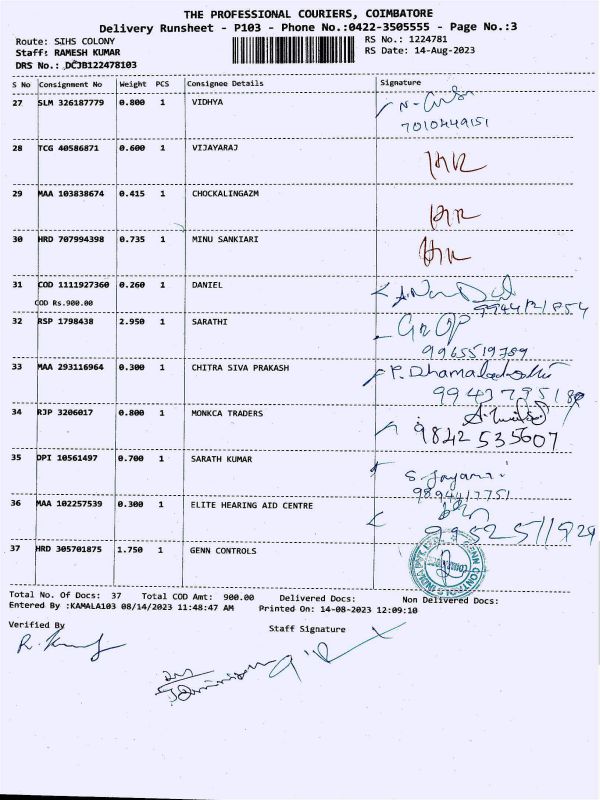 THE PROFESSIONAL COURIERS, COIMBATORE
Delivery Runsheet - P103 - Phone No.:0422-3505555 - Page No.:3
Route: SIHS COLONY RS No.: 1224781
Staff: RAMESH KUMAR RS Date: 14-Aug-2023
DRS No.: DCJB122478103
S No Consignment No Weight PCS Consignee Details Signature
27 SLM 326187779 0.800 1 VIDHYA
7010449151
28 TCG 40586871 0.600 1 VIJAYARAJ
29 MAA 103838674 0.415 1 CHOCKALINGAZM
30 HRD 707994398 0.735 1 MINU SANKIARI
31 COD 1111927360 0.260 1 DANIEL
COD Rs.900.00
32 RSP 1798438 2.950 1 SARATHI
9965519789
33 MAA 293116964 0.300 1 CHITRA SIVA PRAKASH
34 RJP 3206017 0.800 1 MONKCA TRADERS
9842 535607
35 DPI 10561497 0.700 1 SARATH KUMAR
9894417751
36 MAA 102257539 0.300 1 ELITE HEARING AID CENTRE
37 HRD 305701875 1.750 1 GENN CONTROLS
Total No. Of Docs: 37 Total COD Amt: 900.00 Delivered Docs: Non Delivered Docs:
Entered By :KAMALA103 08/14/2023 11:48:47 AM Printed On: 14-08-2023 12:09:10
Verified By Staff Signature